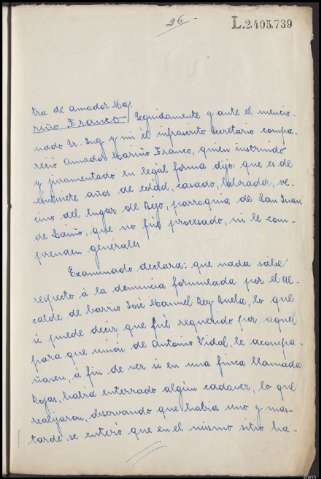 26.
L.2405.739
tra de Amador Ma-
riño Franco / Seguidamente y ante el mencio-
nado Sr. Juez y mi el infrascrito Secretario compa-
reció Amador Mariño Franco, quien instruido
y juramentado en legal forma dijo: que es de
años de edad, casado, labrador, ve-
cino del lugar de parroquia de San Juan
de que no fué procesado, ni le com-
prenden generales
Examinado declara: que nada sabe
respecto á la denuncia formulada por el Al-
calde de barrio José Manuel Rey lo que
si puede decir que fué requerido por aquel
para que unión de Antonio Vidal, le acompa-
ñasen, á fin de ver si en una finca llamada
había enterrado algún cadaver, lo que
realizaron, observando que había uno y mas
tarde se enteró que en el mismo sitio ha-